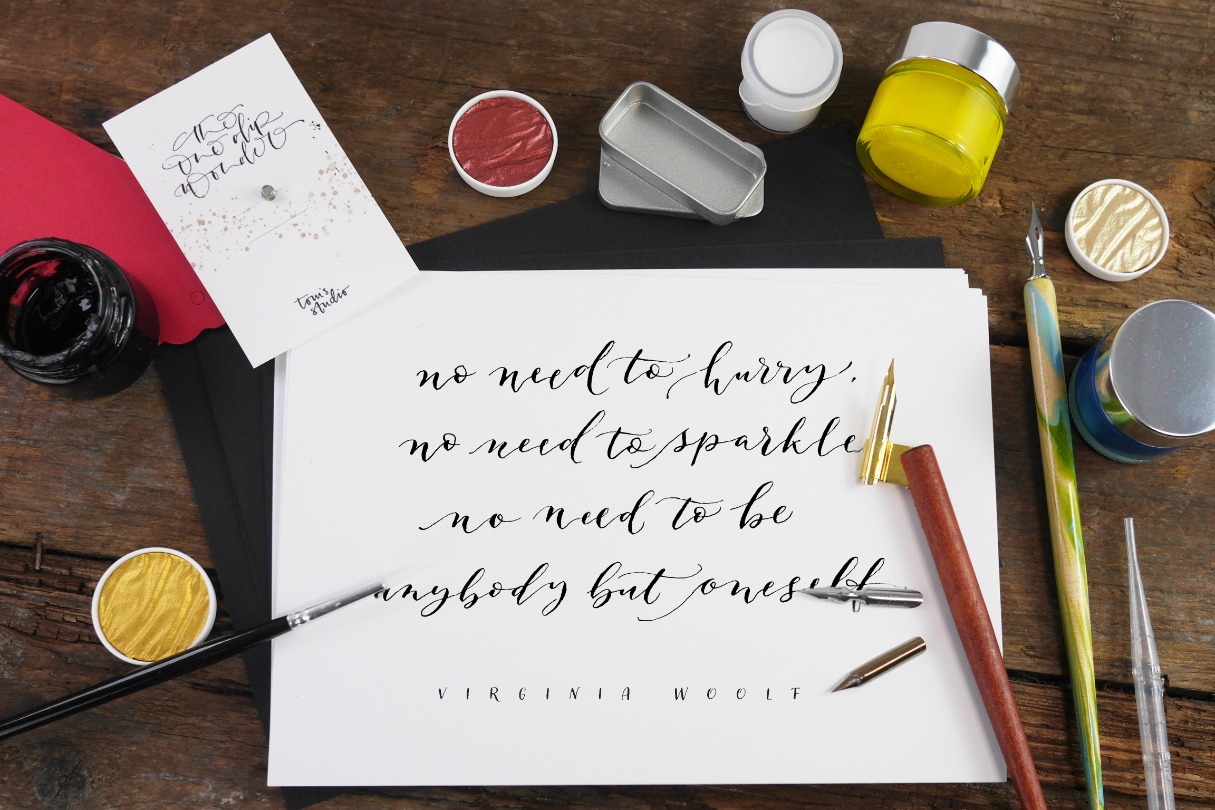 the
one dip
wonder
tom's
studio
no need to hurry.
no need to sparkle
no need to be
anybody but oneself
VIRGINIA WOOLF